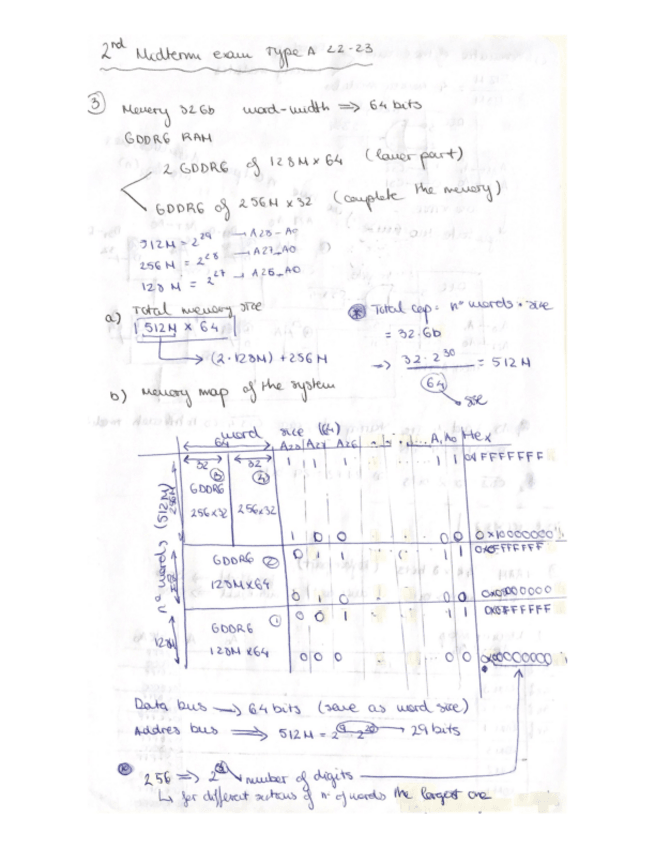 2nd Midterm exam Type A 22-23
3 Memory 32Gb word-width => 64 bits
GDDR6 RAM
2 GDDR6 of 128M x 64 (lower part)
GDDR6 of 256M x 32 (complete the memory)
512M = 2^29 → A28-A0
256M = 2^28 → A27-A0
128M = 2^27 → A26-A0
a) Total memory size
512M x 64
→ (2·128M) + 256M
* Total cap = nº words · size
= 32·Gb
=> 32·2^30 / 64 = 512M
size
b) Memory map of the system
word size (64)
64 A28 A27 A26 A1 A0 Hex
32 32 1 1 1 1 1 0x1FFFFFFF
GDDR6 3 4
256x32 256x32
1 0 0 0 0 0x10000000
nº words (512M)
256M
GDDR6 2 0 1 1 1 1
128Mx64
0 1 0 0 0
GDDR6 1 0 0 1 1 1 0x07FFFFFF
128M
128Mx64 0 0 0 0 0 0x00000000
Data bus → 64 bits (same as word size)
Addres bus => 512M = 2^9 · 2^20 → 29 bits
* 256 => 2^8 number of digits
↳ for different sections of nº of words the largest one